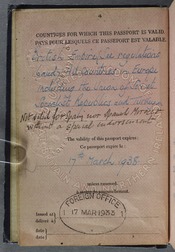 COUNTRIES FOR WHICH THIS PASSPORT IS VALID
PAYS POUR LESQUELS CE PASSEPORT EST VALABLE
British Empire
all countries in Europe
including the Union of Soviet
Socialist Republics and Turkey
Not valid for Spain nor Spanish Morocco
without a special endorsement
The validity of this passport expires:
Ce passeport expire le:
17th March 1938
unless renewed.
Issued at
FOREIGN OFFICE
17 MAR 1933